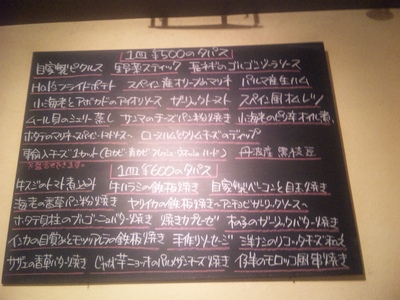 1皿 ¥500のタパス
自家製ピクルス 野菜スティック 長ネギのゴルゴンゾーラソース
HUBフライドポテト スペイン産オリーブのマリネ パルマ産生ハム
小海老とアボカドのアイオリソース ガーリックトースト スペイン風オムレツ
ムール貝のミュリー蒸し サンマのチーズパン粉焼き 小海老の
ホタテのマリネ ロースハムとクリームチーズのディップ
輸入チーズ1カット(白カビ・青カビ・ ・ハード) 丹波産 黒枝豆
1皿 ¥600のタパス
牛スジのトマト煮込み 牛ハラミの鉄板焼き 自家製ベーコンと目玉焼き
海老の香草パン粉焼き ヤリイカの鉄板焼き アンチョビガーリックソース
ホタテ貝柱のブルゴーニュバター焼き 焼きカプレーゼ ガーリックバター焼き
インカの目覚めとモッツァレラの鉄板焼き 手作りソーセージ
サザエの香草バター焼き じゃが芋ニョッキのパルメザンチーズ焼き 仔羊のモロッコ風串焼き